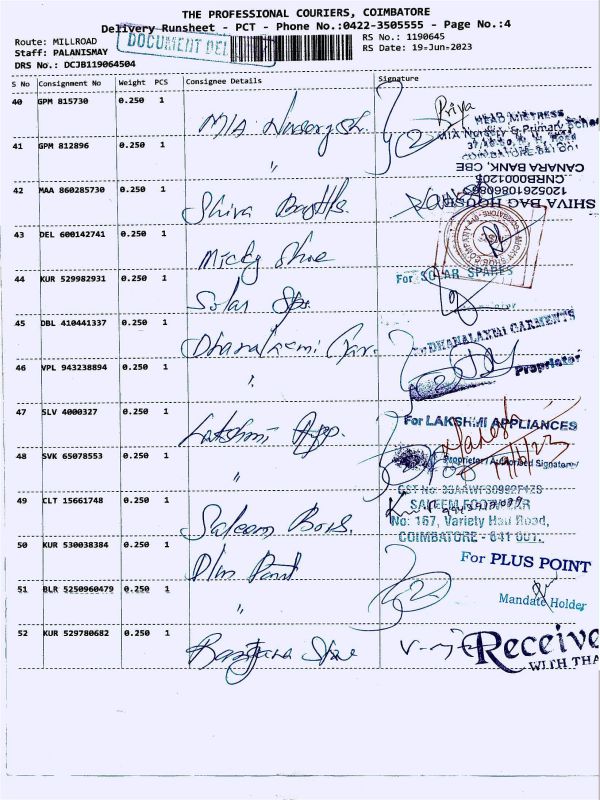 THE PROFESSIONAL COURIERS, COIMBATORE
Delivery Runsheet - PCT - Phone No.:0422-3505555 - Page No.:4
Route: MILLROAD
Staff: PALANISMAY
DRS No.: DCJB119064504
DOCUMENT DEL
RS No.: 1190645
RS Date: 19-Jun-2023
S No Consignment No Weight PCS Consignee Details Signature
40 GPM 815730 0.250 1 Priya
HEAD MISTRESS
MIA Nursery & Primary School
41 GPM 812896 0.250 1 "
CANARA BANK, CBE
CNRB0001205
SHIVA BAG HOUSE
42 MAA 860285730 0.250 1 Shiva
43 DEL 600142741 0.250 1 Micky Shoe
44 KUR 529982931 0.250 1 Solar
For SOLAR SPARES
45 DBL 410441337 0.250 1
DHANALAXMI GARMENTS
46 VPL 943238894 0.250 1 "
Proprietor
47 SLV 4000327 0.250 1 Lakshmi App.
For LAKSHMI APPLIANCES
48 SVK 65078553 0.250 1 "
Proprietor / Authorised Signatory
49 CLT 15661748 0.250 1 Saleem Bros.
SALEEM FOOTWEAR
No: 167, Variety Hall Road,
COIMBATORE - 641 001.
50 KUR 530038384 0.250 1
For PLUS POINT
51 BLR 5250960479 0.250 1 "
Mandate Holder
52 KUR 529780682 0.250 1
Receive
WITH THA